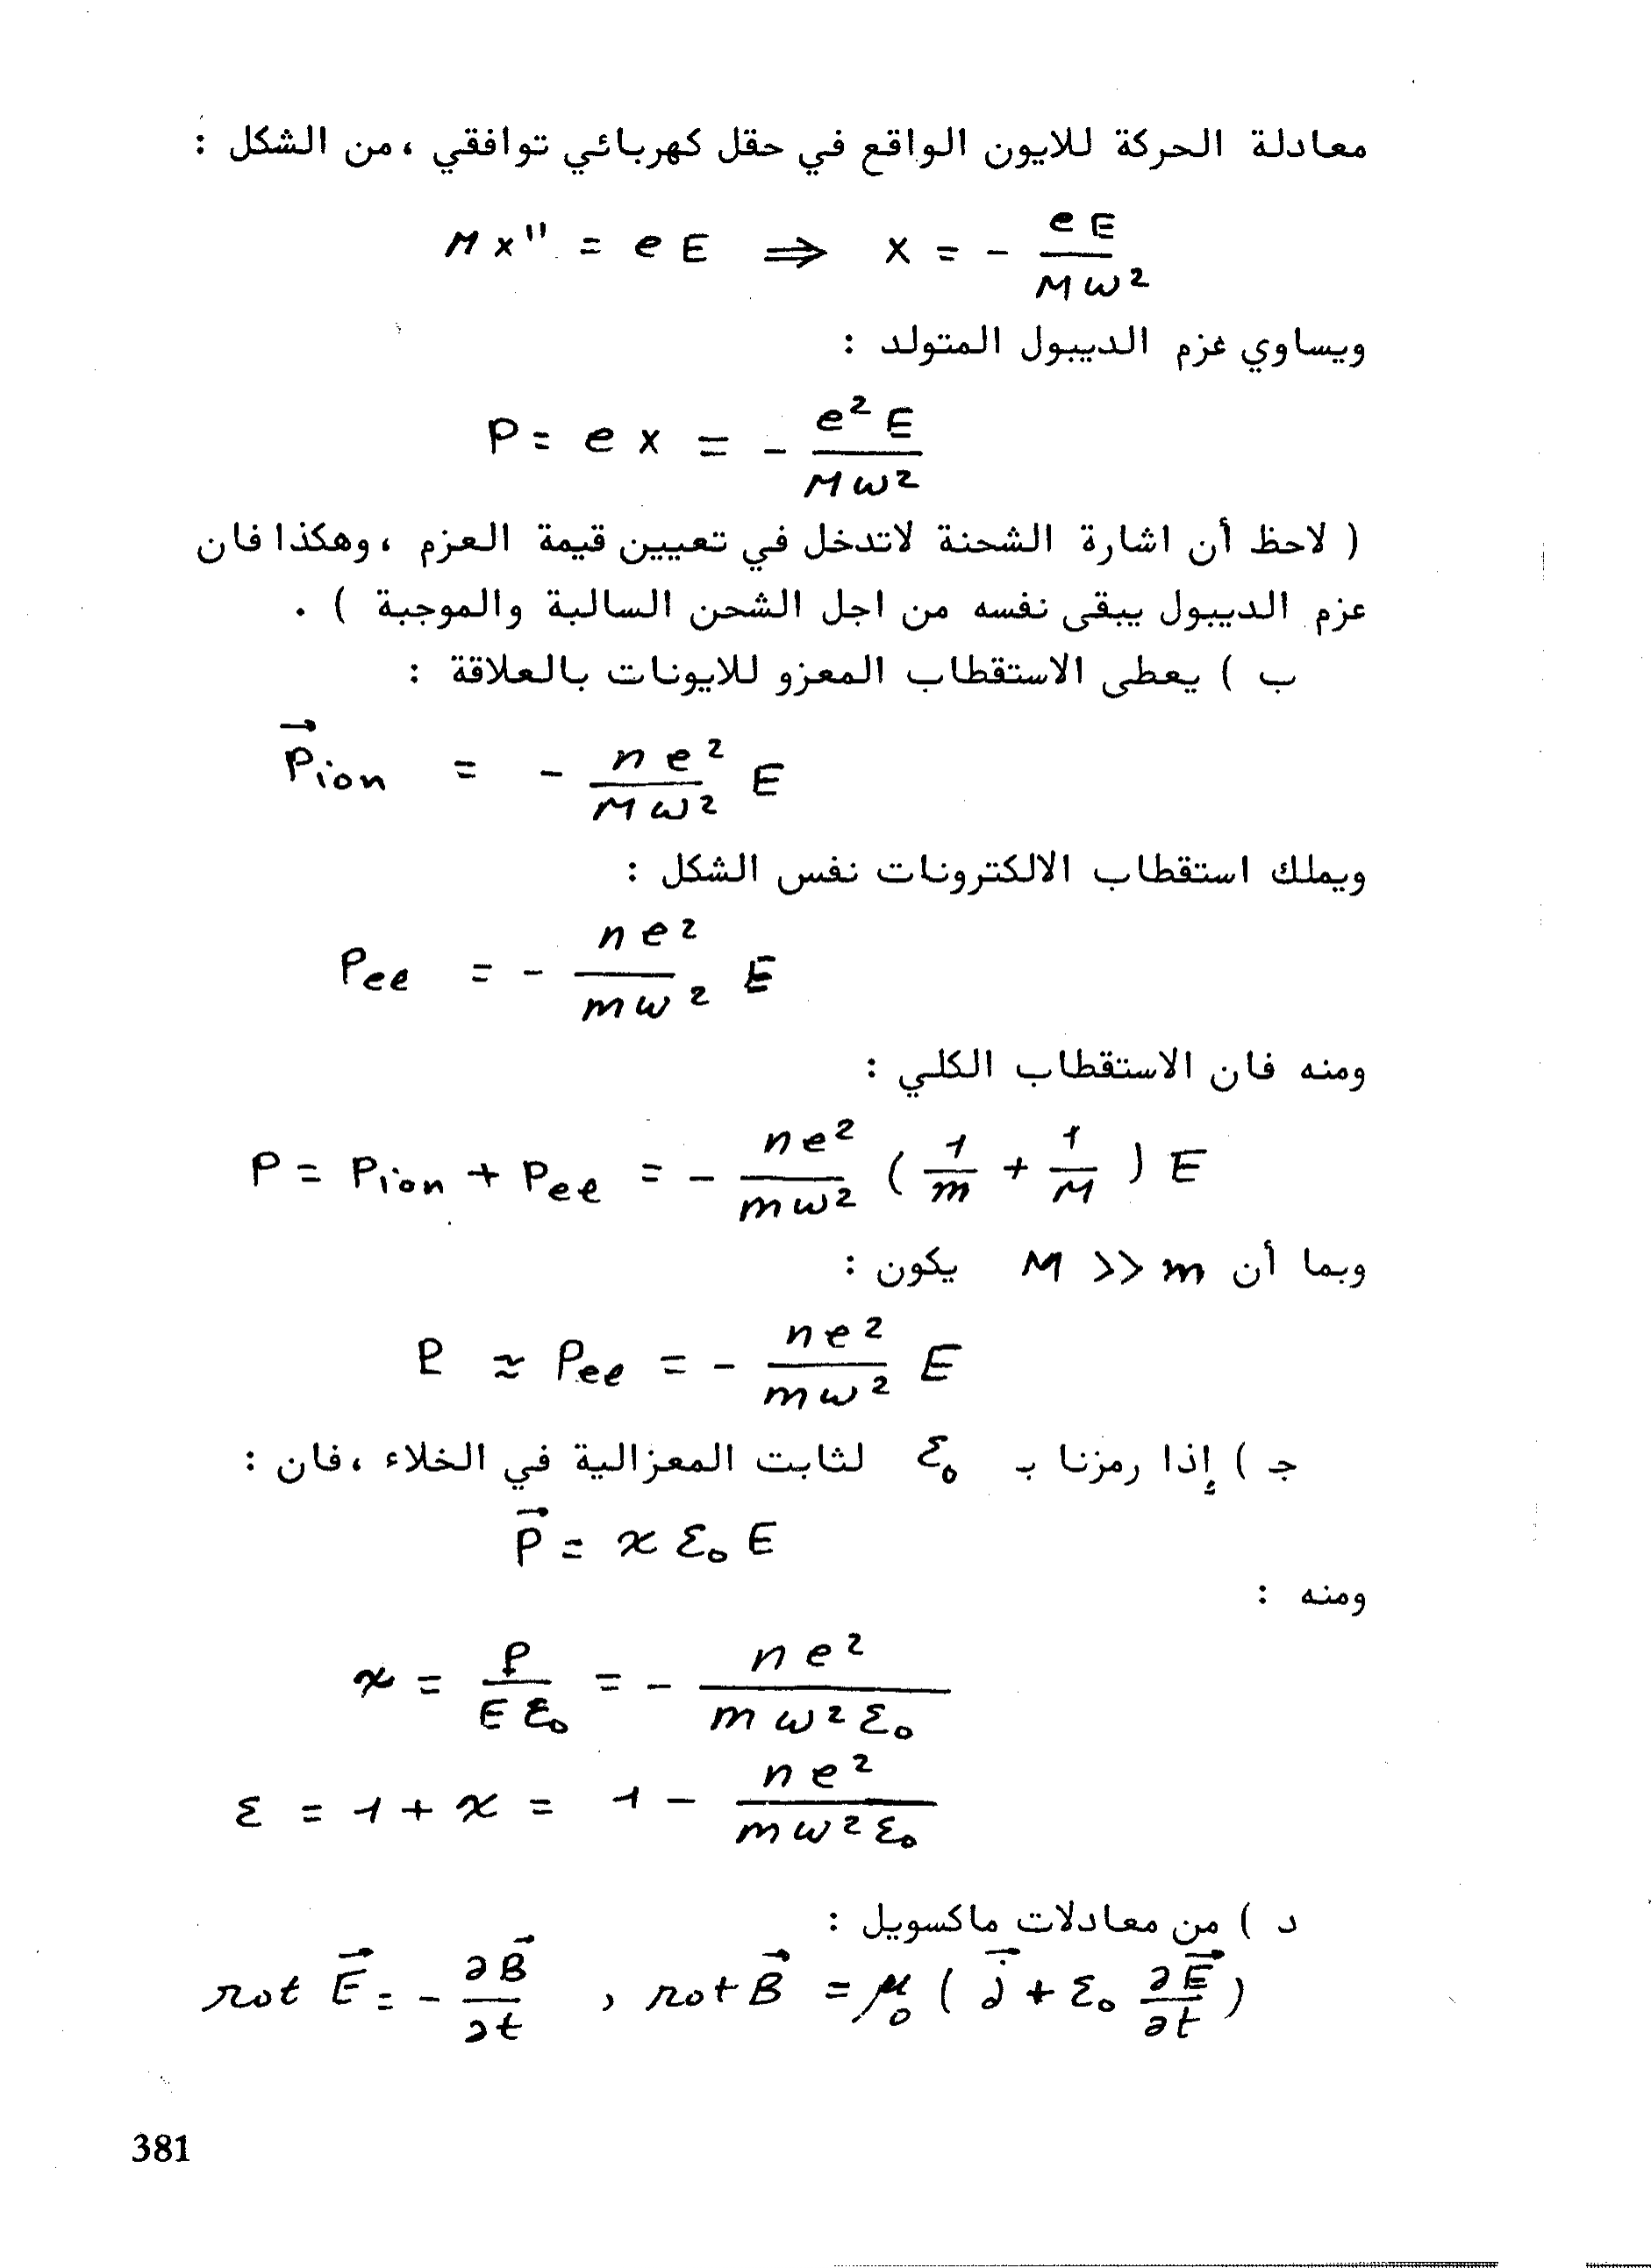 معادلة الحركة للايون الواقع في حقل كهربائي توافقي ، من الشكل :
M x'' = e E ⇒ x = - eE / Mω²
ويساوي عزم الديبول المتولد :
P = e x = - e² E / Mω²
( لاحظ أن اشارة الشحنة لاتدخل في تعيين قيمة العزم ، وهكذا فان
عزم الديبول يبقى نفسه من اجل الشحن السالبة والموجبة ) .
ب ) يعطى الاستقطاب المعزو للايونات بالعلاقة :
P⃗ion = - n e² / Mω² E
ويملك استقطاب الالكترونات نفس الشكل :
Pee = - n e² / mω² E
ومنه فان الاستقطاب الكلي :
P = Pion + Pee = - ne² / mω² ( 1/m + 1/M ) E
وبما أن M >> m يكون :
P ≈ Pee = - ne² / mω² E
جـ ) إذا رمزنا بـ ε₀ لثابت المعزالية في الخلاء ، فان :
P⃗ = x ε₀ E
ومنه :
x = P / E ε₀ = - n e² / m ω² ε₀
ε = 1 + x = 1 - n e² / m ω² ε₀
د ) من معادلات ماكسويل :
rot E⃗ = - ∂B⃗ / ∂t , rot B⃗ = μ₀ ( j⃗ + ε₀ ∂E⃗ / ∂t )
381